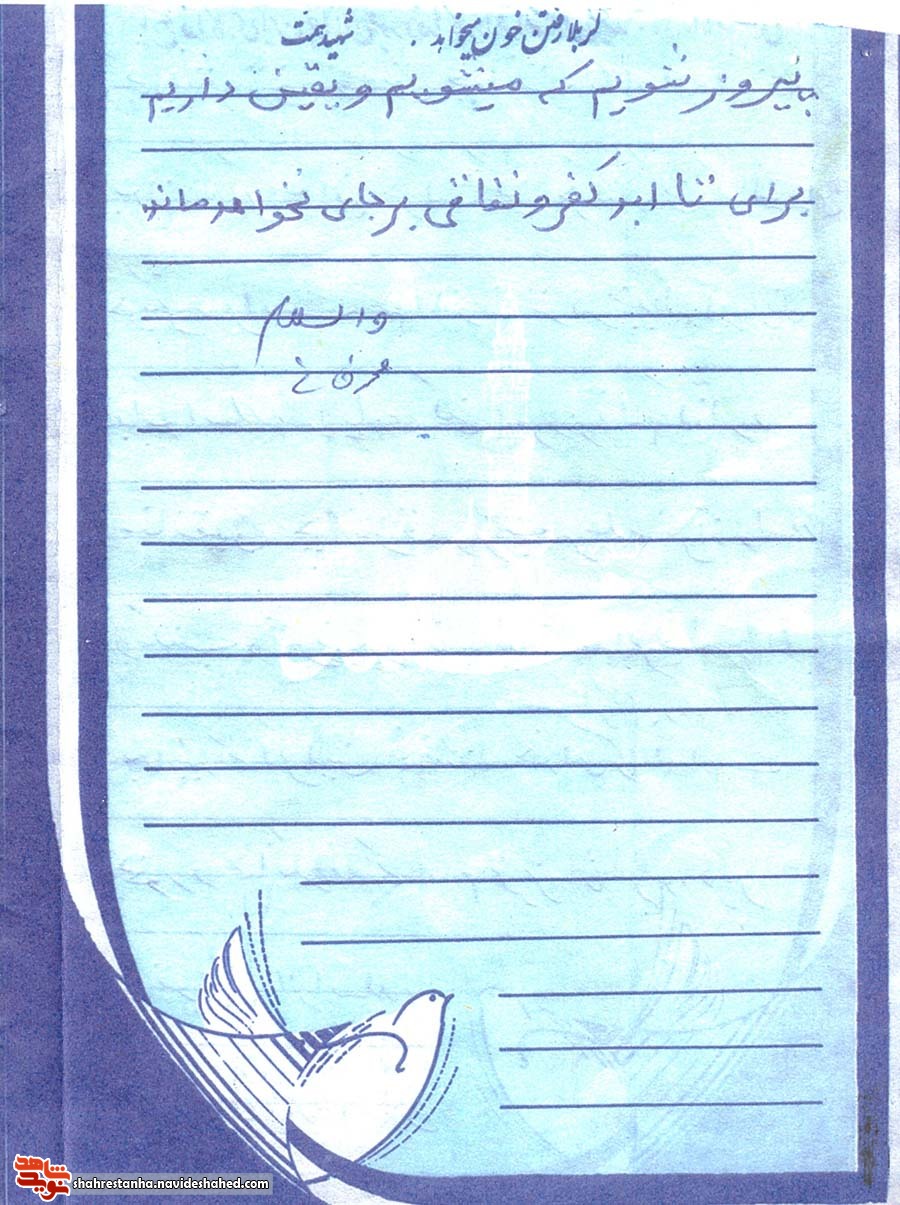 کربلا رفتن خون میخواهد. شهید همت
پیروز نشویم که میشویم و یقین داریم
برای تا ابد کفر و نفاقی برجای نخواهد ماند
والسلام
نوید شاهد
shahrestanha.navideshahed.com